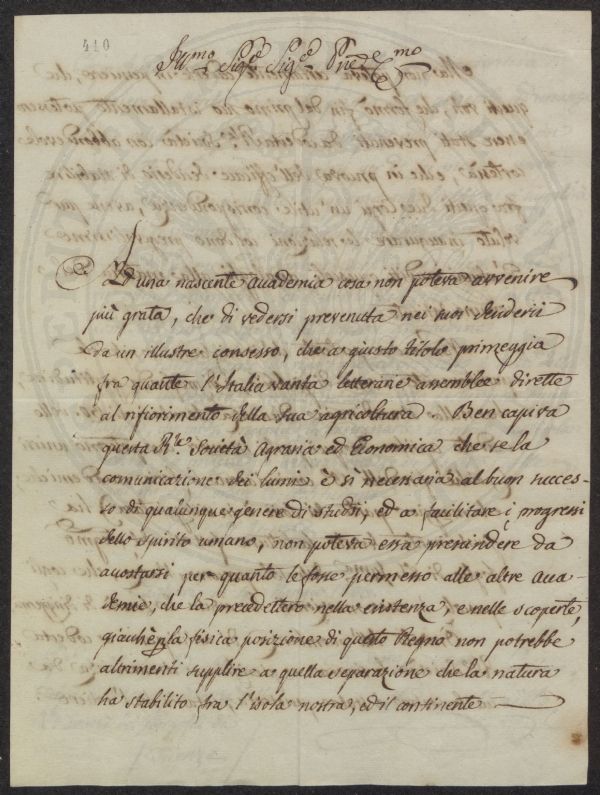 410
Ill.mo Sig.e Sig.e P.ne
Ad una nascente Accademia cosa non poteva avvenire
più grata, che di vedersi prevenuta nei suoi desiderii
da un illustre consesso, che a giusto titolo primeggia
fra quante l'Italia vanta letterarie assemblee dirette
al rifiorimento della sua agricoltura Ben capiva
questa R.le Società Agraria ed Economica che se la
comunicazione dei lumi è sì necessaria al buon succes-
so di qualunque genere di studii, ed a facilitare i progressi
dello spirito umano, non poteva essa prescindere da
accostarsi per quanto le fosse permesso alle altre Acca-
demie, che la precedettero nella esistenza, e nelle scoperte,
giacchè la fisica posizione di questo Regno non potrebbe
altrimenti supplire a quella separazione che la natura
ha stabilito fra l'isola nostra, ed il continente